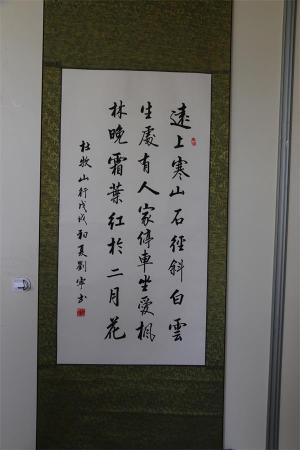 遠上寒山石徑斜白雲
生處有人家停車坐愛楓
林晚霜葉紅於二月花
杜牧山行戊戌初夏劉寧书